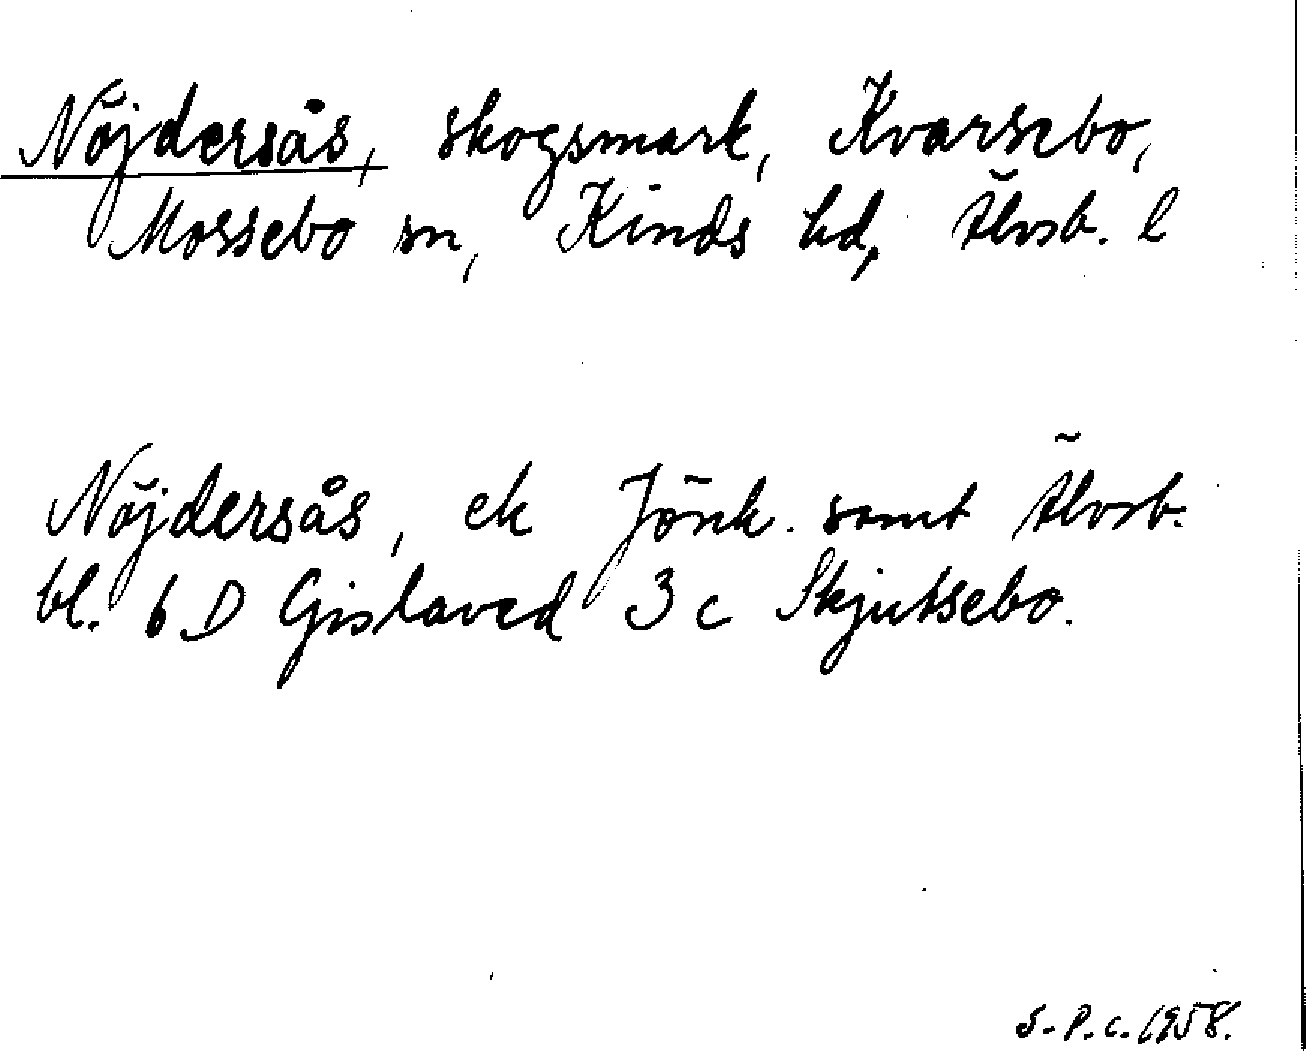 Nöjdersås, skogsmark, Kvarsebo,
Mossebo sn, Kinds hd, Älvsb. l
Nöjdersås, ek Jönk. samt Älvsb.
bl. 6 D Gislaved 3 c Skjutsebo.
S.P.c. 1958.